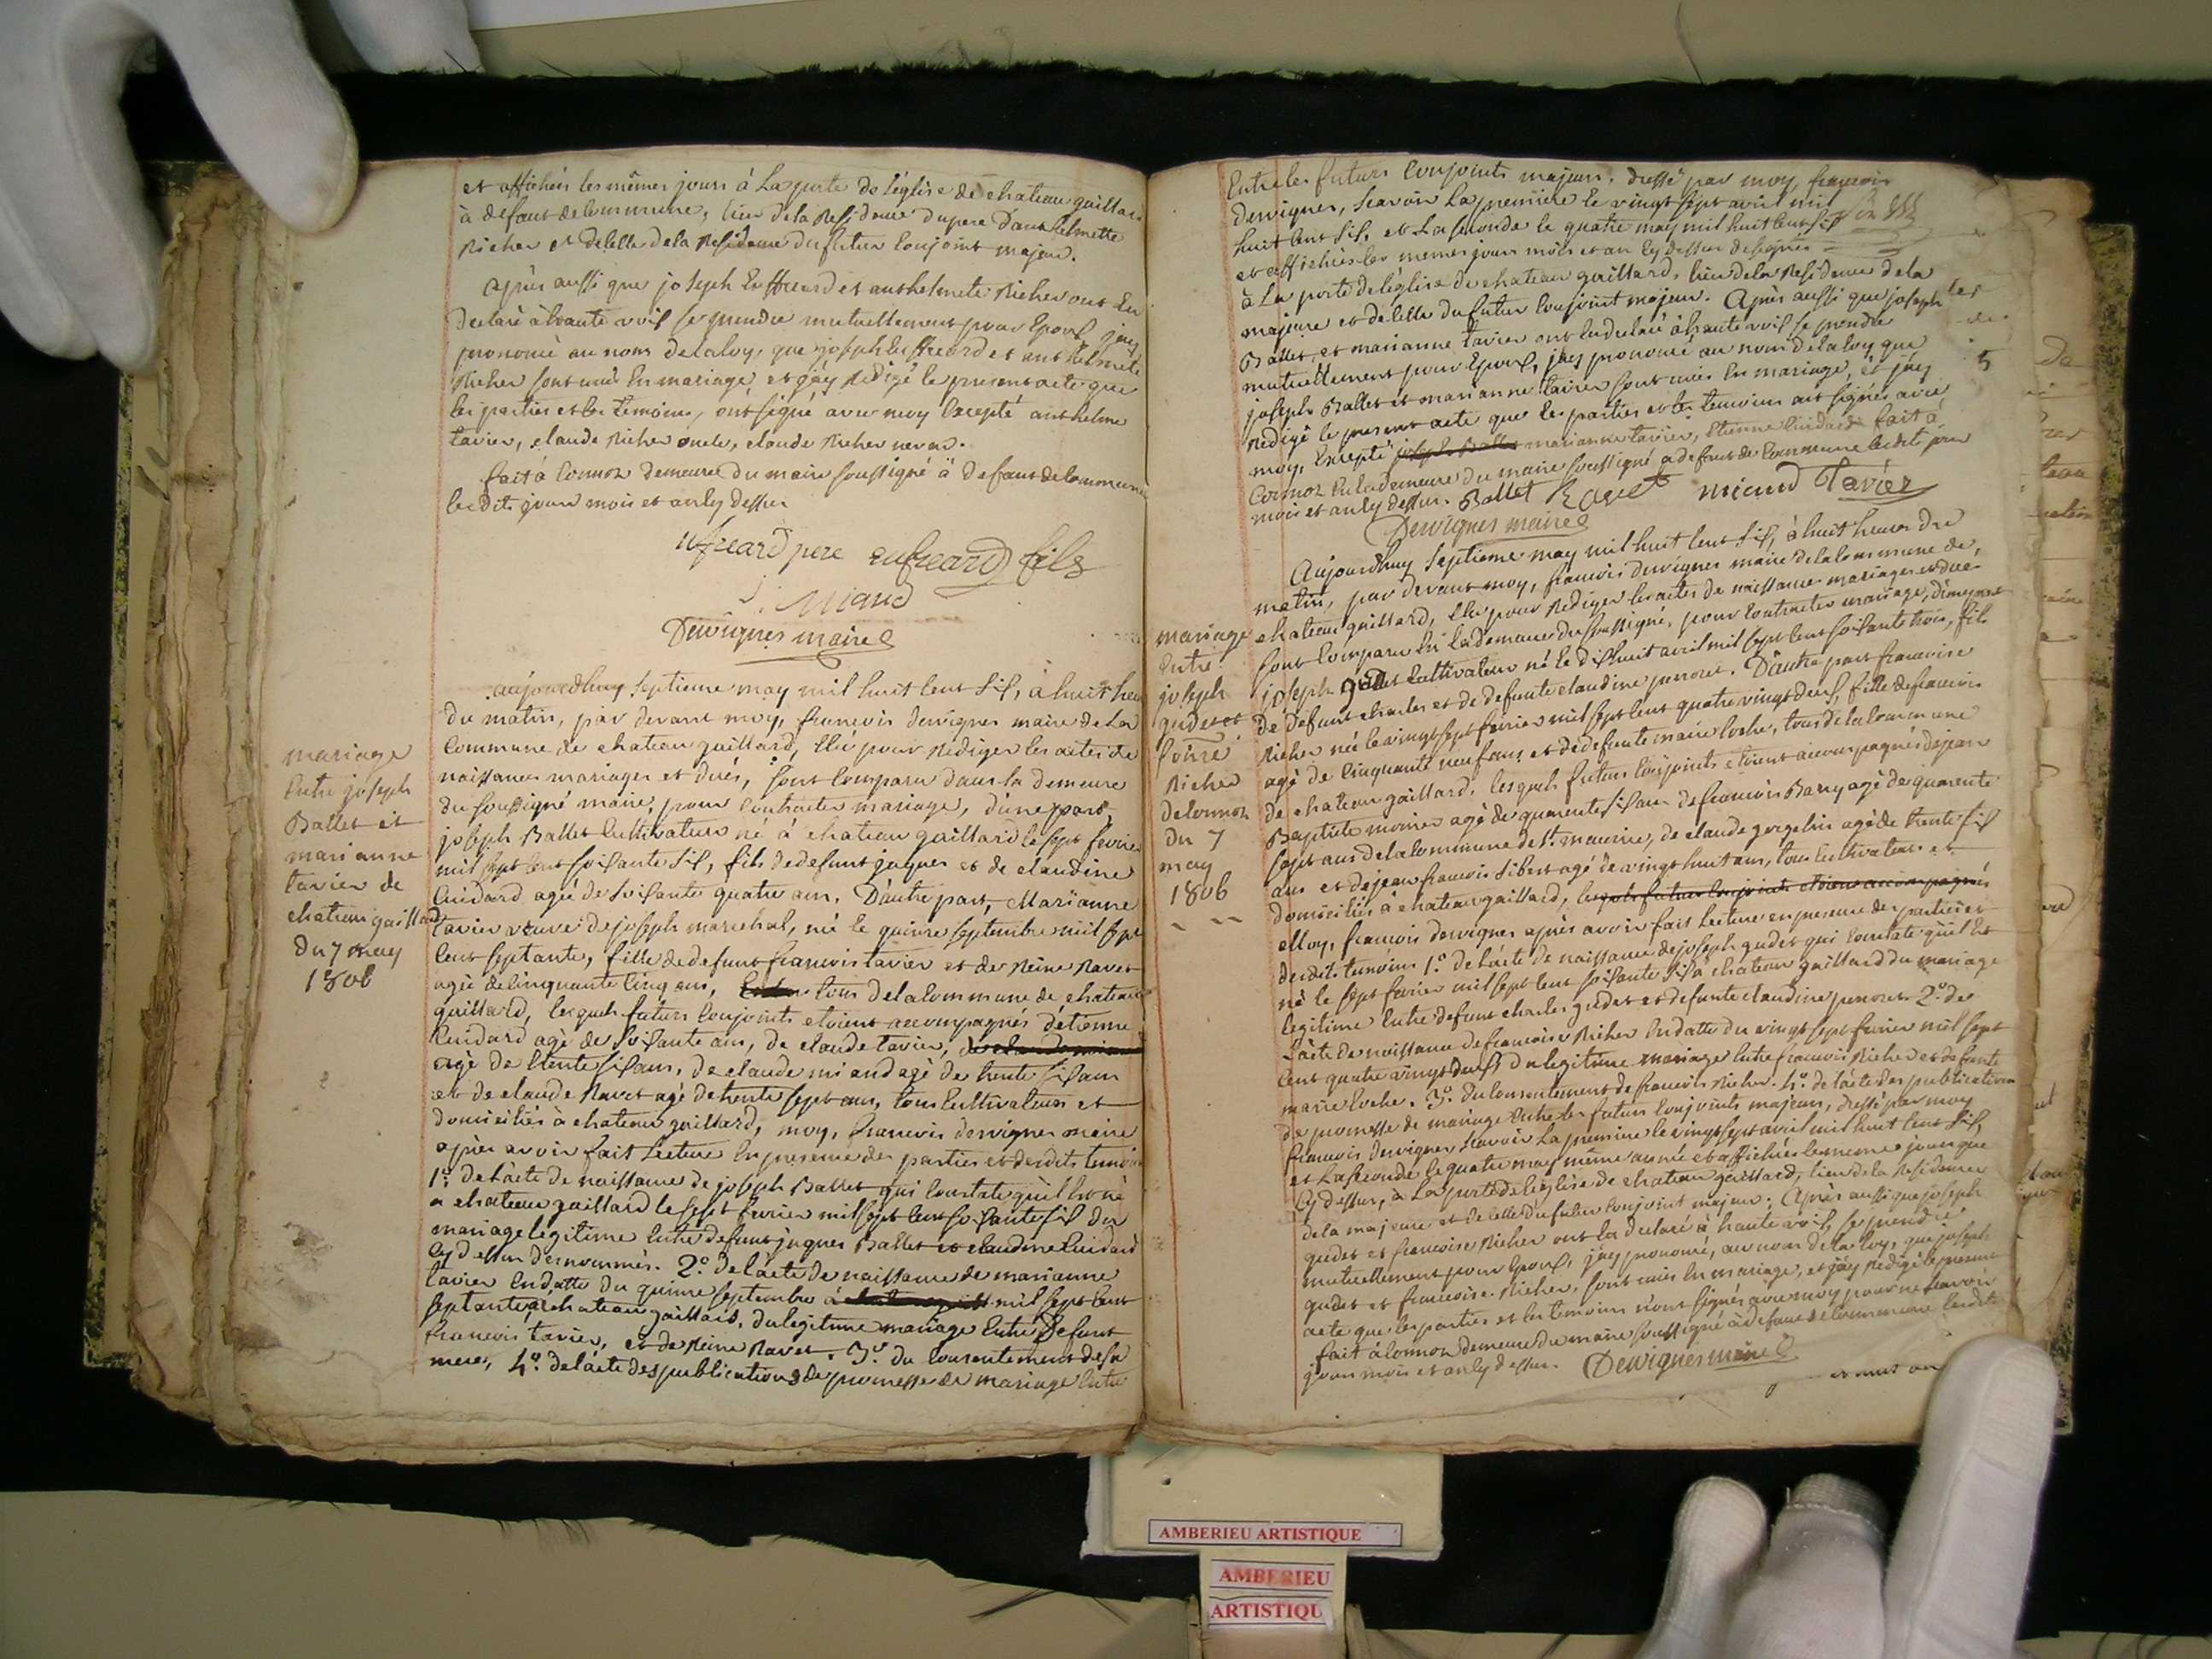 et affichées les mêmes jours à La porte de l'église de chateau gaillard
à defaut de commune, lieu de la Residence du pere D'anthelmette
Richer et de celle de la Residence du futur Conjoint majeur.
après aussi que joseph Euffreard et anthelmete Richer ont Eu
declaré à haute voix se prendre mutuellement pour Epoux, jäy
prononcé au nom de la loy, que joseph Euffreard et anthelmete
Richer sont unis En mariage, et jäy Redigé le present acte que
les parties et les temoins, ont signé avec moy Excepté anthelme
tavier, claude Richer oncle, claude Richer neveu.
fait à Cormoz Demeure Du maire soussigné à defaut de commune
lesdits jour mois et an cy dessus
pere Eufreard fils
Miand
Dervignes maire
mariage
Entre joseph
Ballet et
marianne
tavier de
chateau gaillard
Du 7 may
1806
aujourdhuy septieme may mil huit cent six, à huit heu
du matin, par devant moy, francois dervignes maire de La
Commune de chateau gaillard, Elu pour Rediger les actes de
naissances mariages et decés, sont comparu dans la demeure
du soussigné maire, pour Contracter mariage, d'une part,
joseph Ballet Cultivateur né à chateau gaillard le sept fevrier
mil sept cent soixante six, fils de defunt jaques et de claudine
Cuidard agée de soixante quatre ans. D'autre part, Marianne
tavier veuve de joseph marechal, née le quinze septembre mil sept
cent septante, fille de defunt francois tavier et de Reine Ravet
agée de Cinquante Cinq ans, tous de la Commune de chateau
guillard, lesquels futurs Conjoints etoient accompagnés d'étienne
Cuidard agé de soixante ans, de claude tavier,
agé de trente six ans, de claude miand agé de trente six ans
et de claude Ravet agé de trente sept ans, tous Cultivateurs et
domiciliés à chateau gaillard, moy, francois dervignes maire
après avoir fait Lecture En presence des parties et desdits temoins
1°. de L'acte de naissance de joseph Ballet qui Constate qu'il Est né
a chateau gaillard le sept fevrier mil sept cent soixante six du
mariage legitime Entre defunt jaques Ballet et claudine Cuidard
cy dessus denommés. 2°. de L'acte de naissance de marianne
tavier En datte du quinze septembre mil sept cent
septante, à chateau gaillard, du legitime mariage Entre Defunt
francois tavier, et de Reine Ravet. 3°. du Consentement de sa
mere, 4°. de l'acte des publications de promesse de mariage Entre
Entre les futurs Conjoints majeurs. dressé par moy, francois
dervignes, scavoir La premiere le vingt sept avril mil
huit cent six, et La seconde le quatre may mil huit cent six
et affichées les memes jours mois et an cy dessus designés
à La porte de l'église de chateau gaillard, lieu de la Residence de la
majeure et de celle du futur Conjoint majeur. Après aussi que joseph
Ballet et marianne tavier ont Eu declaré à haute voix se prendre
mutuellement pour Epoux, jäy prononcé au nom de la loy que
joseph Ballet et marianne tavier sont unis En mariage, et jäy
redigé le present acte que les parties et les temoins ont signés avec
moy, Excepté joseph Ballet marianne tavier, Etienne Cuidard fait à
Cormoz En la demeure du maire soussigné a defaut de Commune lesdits jour
mois et an cy dessus. Ballet Ravet miand Tavier
Dervignes maire
mariage
Entre
joseph
gudet et
Richer
de cormoz
Du 7
may
1806
Aujourdhuy septieme may mil huit cent six, à huit heures du
matin, par devant moy, francois dervignes maire de la Commune de
chateau gaillard, Elu pour Rediger les actes de naissances mariages et decé
sont Comparu En la demeure du soussigné, pour Contracter mariage, D'une part
joseph gudet Cultivateur né le dix huit avril mil sept cent soixante trois, fils
de defunt charles et de defunte claudine perroset. D'autre part francoise
Richer née le vingt sept fevrier mil sept cent quatre vingt deux, fille de francois
agé de Cinquante neuf ans, et de defunte marie loche, tous de la Commune
de chateau gaillard. lesquels futurs Conjoints etoient accompagnés de jean
Baptiste moiner agé de quarente six ans de francois Barry agé de quarente
sept ans de la Commune de st. maurice, de claude gorgelin agé de trente six
ans et de jean francois sibert agé de vingt huit ans, tous Cultivateurs et
domiciliés à chateau gaillard, lesquels futurs Conjoints etoient accompagnés
Moy, francois dervignes après avoir fait Lecture en presence des parties et
desdits temoins 1°. de L'acte de naissance de joseph gudet qui Constate qu'il Est
né le sept fevrier mil sept cent soixante six à chateau gaillard du mariage
legitime Entre defunt charles gudet et defunte claudine perroset. 2°. de
L'acte de naissance de francoise Richer En datte du vingt sept fevrier mil sept
cent quatre vingt deux, du legitime mariage Entre francois Richer et defunte
marie loche. 3°. du Consentement de francois Richer. 4°. de l'acte des publications
de promesse de mariage Entre les futurs Conjoints majeurs, dressé par moy
francois dervignes scavoir La premiere le vingt sept avril mil huit cent six,
et La seconde le quatre may même année et affichées les memes jours que
cy dessus, à La porte de l'église de chateau gaillard, lieu de la Residence
de la majeure et de celle du futur Conjoint majeur. Après aussi que joseph
gudet et francoise Richer ont Eu declaré à haute voix, se prendre
mutuellement pour Epoux, jäy prononcé, au nom de la loy, que joseph
gudet et francoise Richer, sont unis En mariage, et jäy Redigé le present
acte que les parties et les temoins n'ont signés avec moy pour ne scavoir
fait à Cormoz demeure du maire soussigné à defaut de Commune lesdits
jour mois et an cy dessus. Dervignes maire
AMBERIEU ARTISTIQUE
AMBERIEU
ARTISTIQU